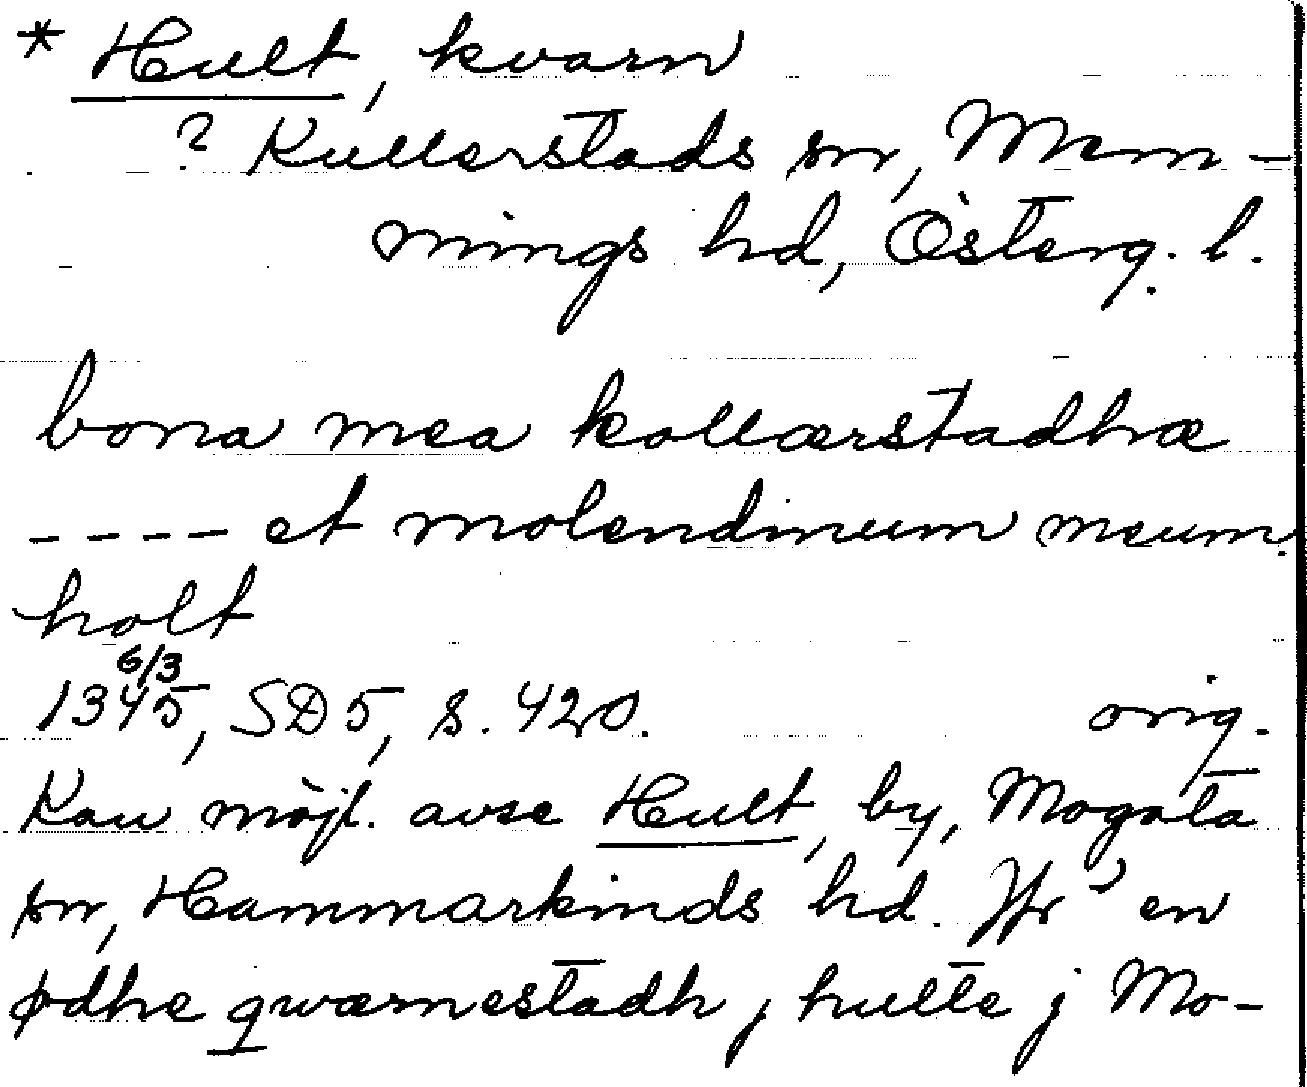 * Hult, kvarn
? Kullerstads sn, Mem-
mings hd, Österg. l.
bona mea kollærstadhæ
---- et molendinum meum
holt
1345 6/3, SD 5, s. 420. orig.
Kan möjl. avse Hult, by, Mogata
sn, Hammarkinds hd. Jfr ʼen
ødhe qwærnestadh j hulte j Mo-